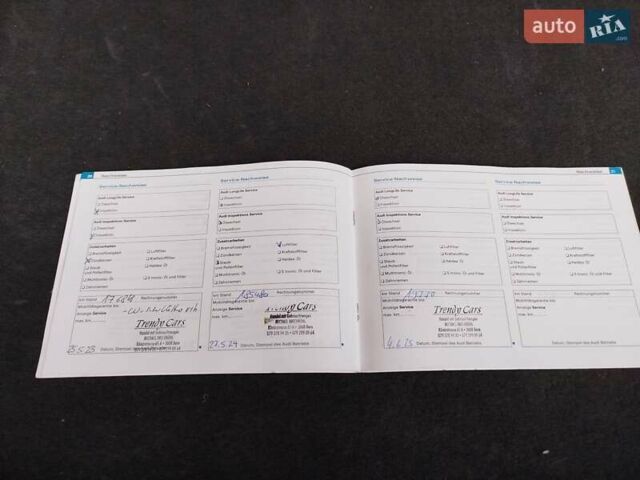 auto RIA .com
20 Nachweise
Nachweise 21
Service-Nachweise
Audi LongLife Service
Ölwechsel
Inspektion
Audi Inspektions-Service
Ölwechsel
Inspektion
Zusatzarbeiten
Bremsflüssigkeit
Luftfilter
Zündkerzen
Kraftstofffilter
Staub- und Pollenfilter
Haldex Öl
Multitronic Öl
S tronic Öl und Filter
Zahnriemen
km Stand
Rechnungsnummer
Mobilitätsgarantie bis
Anzeige Service
max. km
Trendy Cars
23.5.23
Datum, Stempel des Audi Betriebs
Service-Nachweise
Audi LongLife Service
Ölwechsel
Inspektion
Audi Inspektions-Service
Ölwechsel
Inspektion
Zusatzarbeiten
Bremsflüssigkeit
Luftfilter
Zündkerzen
Kraftstofffilter
Staub- und Pollenfilter
Haldex Öl
Multitronic Öl
S tronic Öl und Filter
Zahnriemen
km Stand
Rechnungsnummer
Mobilitätsgarantie bis
Anzeige Service
max. km
Trendy Cars
27.5.24
Datum, Stempel des Audi Betriebs
Service-Nachweise
Audi LongLife Service
Ölwechsel
Inspektion
Audi Inspektions-Service
Ölwechsel
Inspektion
Zusatzarbeiten
Bremsflüssigkeit
Luftfilter
Zündkerzen
Kraftstofffilter
Staub- und Pollenfilter
Haldex Öl
Multitronic Öl
S tronic Öl und Filter
Zahnriemen
km Stand
Rechnungsnummer
Mobilitätsgarantie bis
Anzeige Service
max. km
Trendy Cars
4.6.25
Datum, Stempel des Audi Betriebs
Service-Nachweise
Audi LongLife Service
Ölwechsel
Inspektion
Audi Inspektions-Service
Ölwechsel
Inspektion
Zusatzarbeiten
Bremsflüssigkeit
Luftfilter
Zündkerzen
Kraftstofffilter
Staub- und Pollenfilter
Haldex Öl
Multitronic Öl
S tronic Öl und Filter
Zahnriemen
km Stand
Rechnungsnummer
Mobilitätsgarantie bis
Anzeige Service
max. km
Datum, Stempel des Audi Betriebs